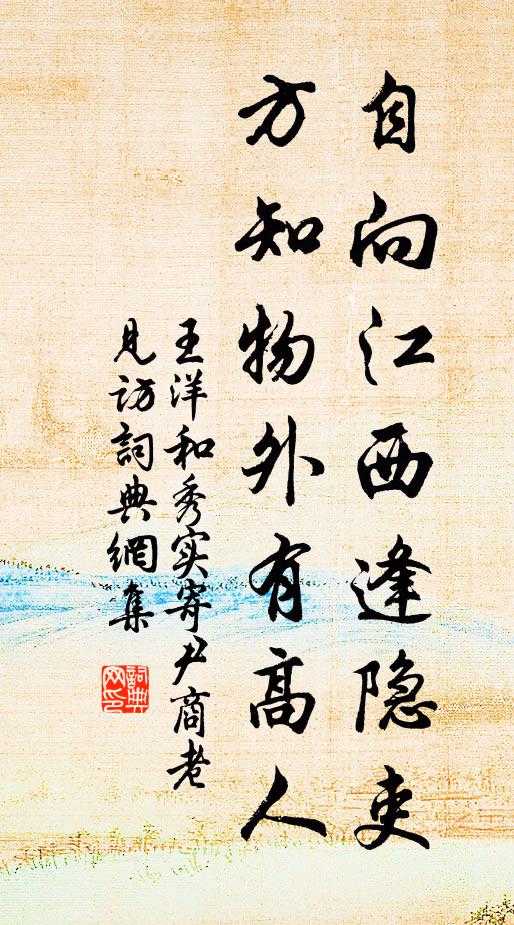 自向江西逢隐吏
方知物外有高人
王洋和秀实寄尹商老
見访詞典網集
詞典
网印